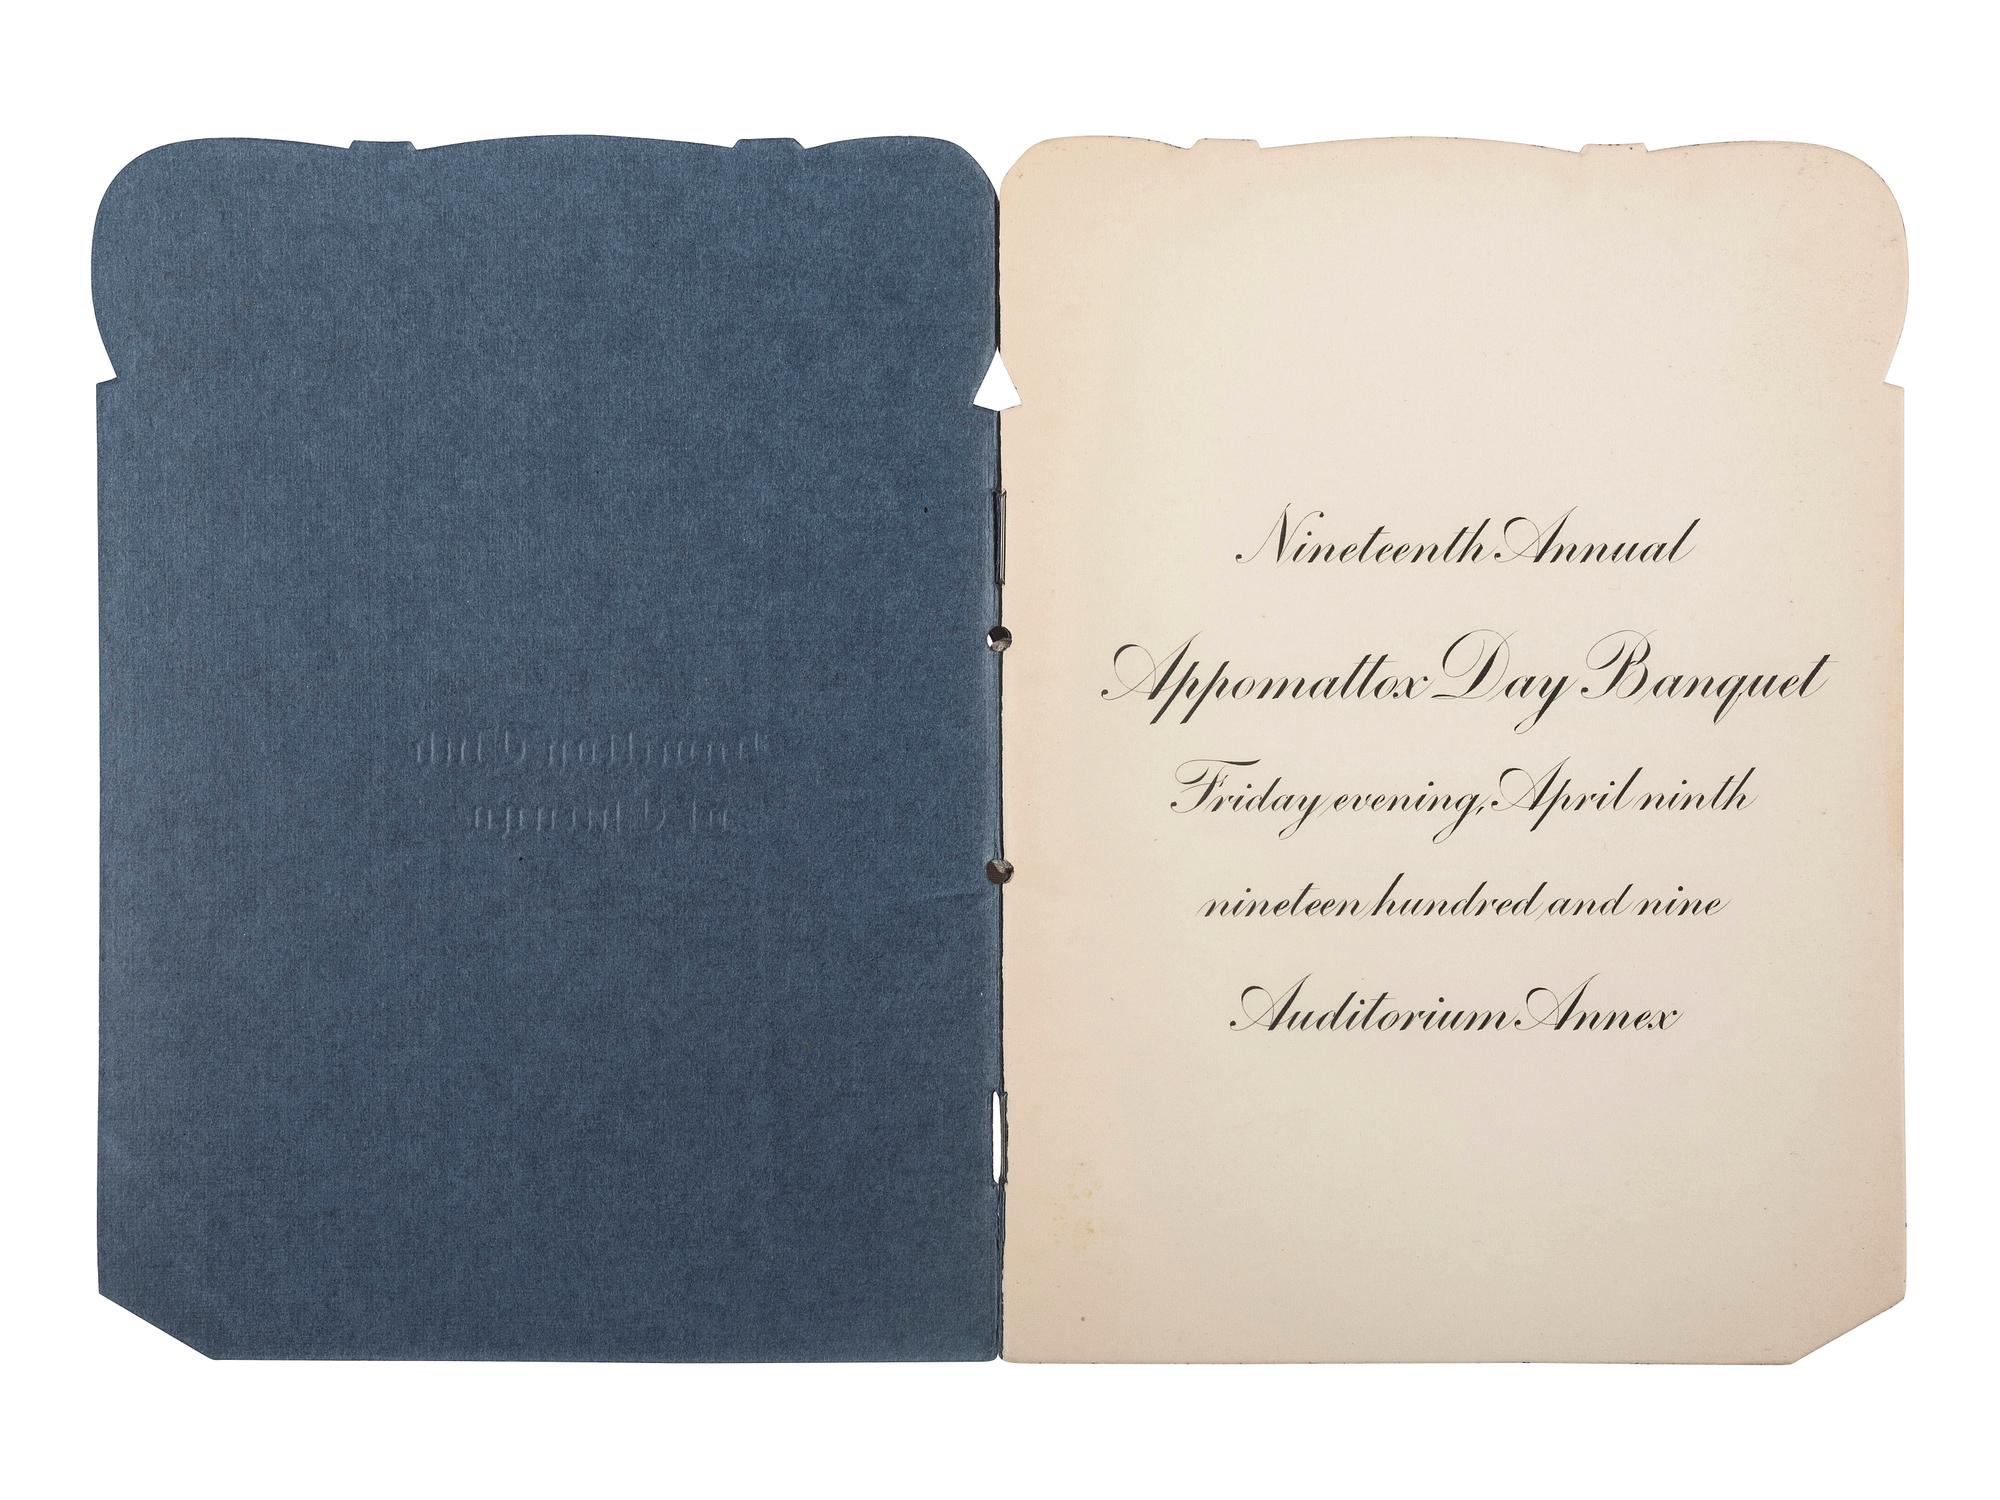 Hamilton Club
of Chicago
Nineteenth Annual
Appomattox Day Banquet
Friday evening, April ninth
nineteen hundred and nine
Auditorium Annex